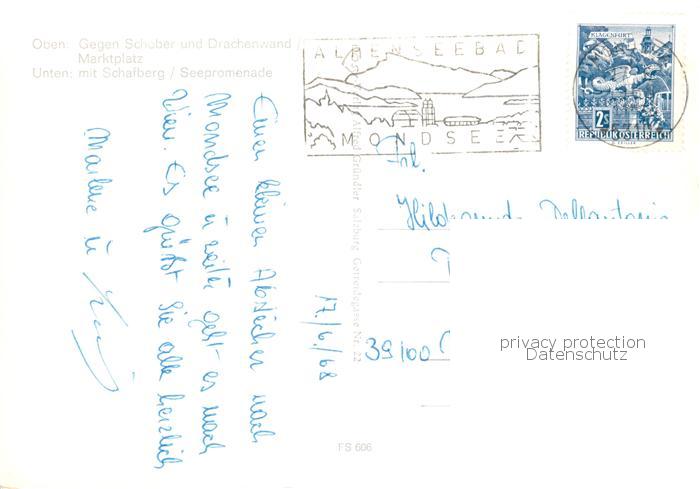 Oben: Gegen Schober und Drachenwand /
Marktplatz
Unten: mit Schafberg / Seepromenade
ALPENSEEBAD
MONDSEE
KLAGENFURT
2S
REPUBLIK ÖSTERREICH
Einen kleinen Abstecher nach
Mondsee u weiter geht es nach
Wien. Es grüßt Sie alle herzlich
Marlene u
17./6./68
Alfred Gründler Salzburg Getreidegasse Nr. 22
Frl.
Hildegund Dellantonio
39100
privacy protection
Datenschutz
FS 606